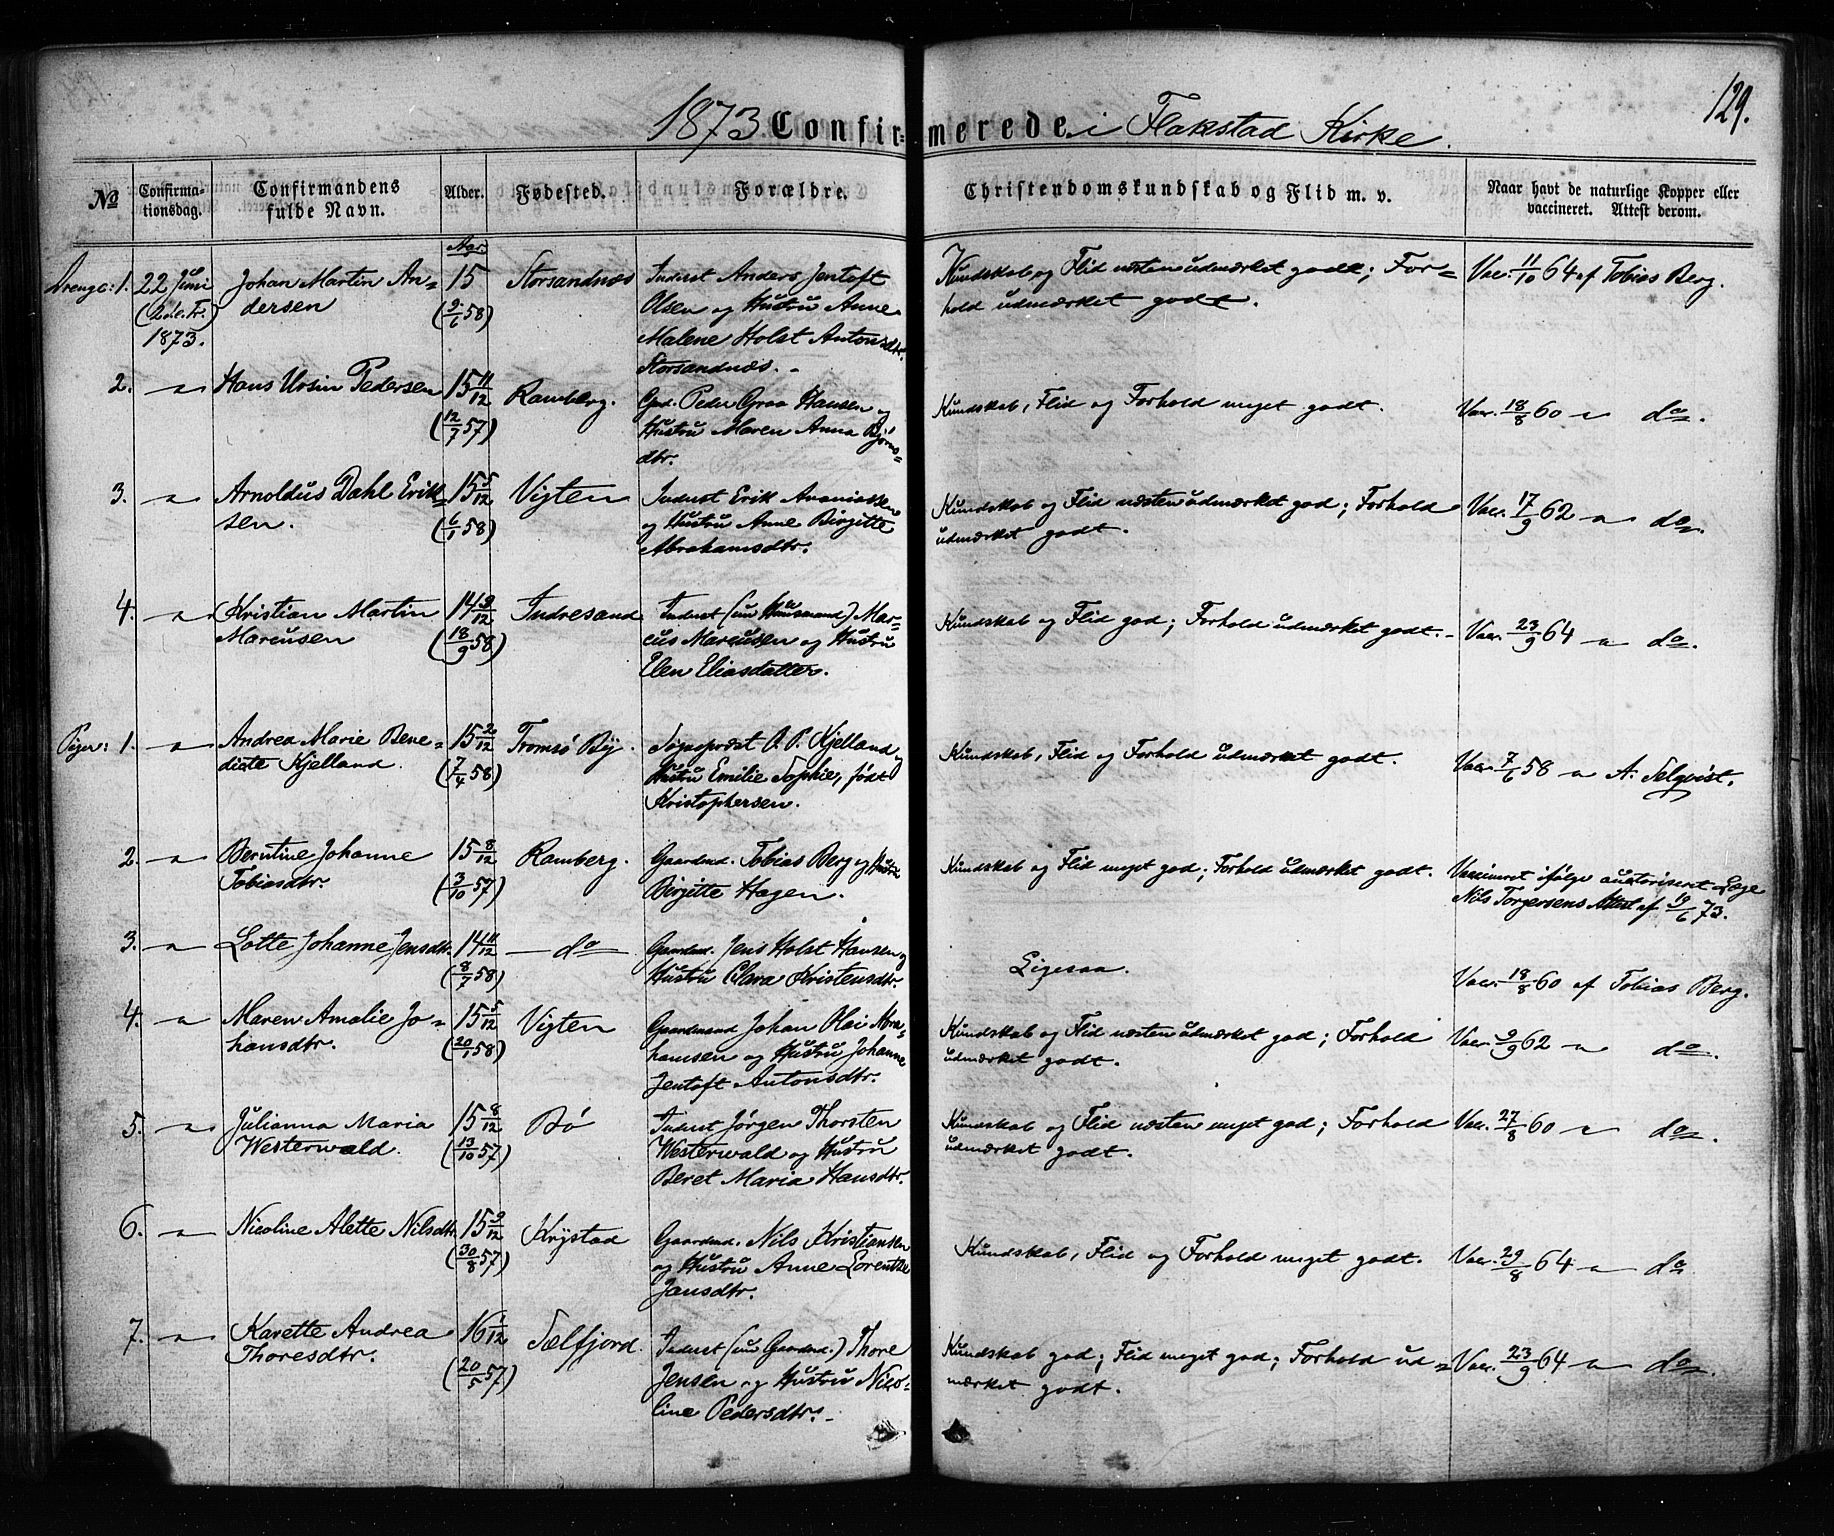 129.
1873 Confirmerede i Flakstad Kirke.
No
Confirmationsdag.
Confirmandens fulde Navn.
Alder.
Fødested.
Forældre.
Christendomskundskab og Flid m. v.
Naar havt de naturlige Kopper eller vaccineret. Attest derom.
Aar.
Drenge: 1. 22 Juni Johan Martin An= 15 Storsandnæs Inderst Anders Jentoft Kundskab og Flid næsten udmærket godt; For= Vac. 11/10 64 af Tobias Berg.
(2 de. Tr.) dersen (2/6 58) Olsen og Hustru Anne hold udmærket godt.
1873. Malene Holst Antonsdtr.
Storsandnæs.
2. " Hans Ursin Pedersen 15 11/12 Ramberg. Grd. Peder Graa Hansen og Kundskab, Flid og Forhold meget godt. Vac. 18/8 60 " do.
(12/7 57) Hustru Maren Anna Bjørns=
dtr.
3. " Arnoldus Dahl Erik= 15 5/12 Vigten Inderst Erik Ananiassen Kundskab og Flid næsten udmærket god; Forhold Vac. 17/9 62 " do.
sen. (6/1 58) og Hustru Anne Birgitte udmærket godt.
Abrahamsdtr.
4. " Kristian Martin 14 9/12 Indresand Inderst (un Husmand) Mar= Kundskab og Flid god; Forhold udmærket godt. Vac. 23/9 64 " do.
Marcusen (18/9 58) cus Marcusen og Hustru
Elen Eliasdatter.
Piger: 1. " Andrea Marie Bene= 15 2/12 Tromsø By. Sogneprest O. P. Kjelland og Kundskab, Flid og Forhold udmærket godt. Vac. 7/6 58 " A. Selqvist.
dicte Kjelland. (7/4 58) Hustru Emilie Sophie, født
Kristophersen.
2. " Berntine Johanne 15 8/12 Ramberg. Gaardmd. Tobias Berg og Hustru Kundskab og Flid meget god; Forhold udmærket godt. Vaccineret ifølge auctoriseret Læge
Tobiasdtr. (3/10 57) Birgitte Hagen. Nils Torgersens Attest af 19/6 73.
3. " Lotte Johanne Jensdtr. 14 11/12 do Gaardmd. Jens Holst Hansen og Ligesaa. Vac. 18/8 60 af Tobias Berg.
(8/7 58) Hustru Clara Kristensdtr.
4. " Maren Amalie Jo= 15 5/12 Vigten Gaardmand Johan Olai Abra= Kundskab og Flid næsten udmærket god; Forhold Vac. 9/9 62 " do.
hansdtr. (20/1 58) hamsen og Hustru Johanne udmærket godt.
Jentoft Antonsdtr.
5. " Julianna Maria 15 8/12 Bø Inderst Jørgen Thorsten Kundskab og Flid næsten meget god; Forhold Vac. 27/8 60 " do.
Westerwald. (13/10 57) Westerwald og Hustru udmærket godt.
Beret Maria Hansdtr.
6. " Nicoline Alette Nilsdtr. 15 9/12 Krystad Gaardmd. Nils Kristiansen Kundskab, Flid og Forhold meget godt. Vac. 29/8 64 " do
(30/8 57) og Hustru Anne Lorentze
Jansdtr.
7. " Karette Andrea 16 1/12 Sælfjord. Inderst (un Gaardmd.) Thore Kundskab god; Flid meget god; Forhold ud= Vac. 23/9 64 " do.
Thoresdtr. (20/5 57) Jensen og Hustru Nico= mærket godt.
line Pedersdtr.